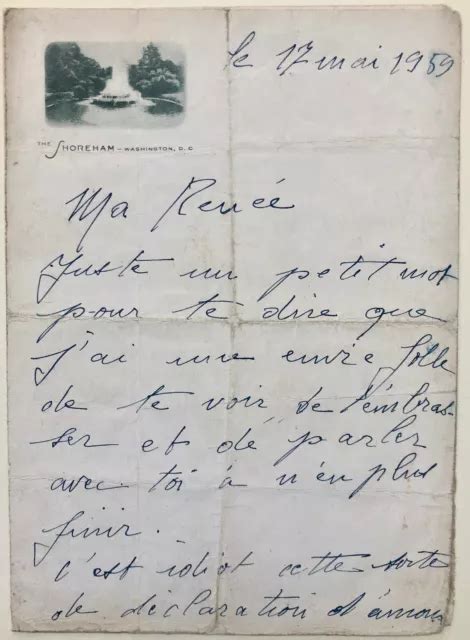 le 17 mai 1959
THE SHOREHAM – WASHINGTON, D. C.
Ma Renée
Juste un petit mot
pour te dire que
j'ai une envie folle
de te voir de t'embras-
ser et de parler
avec toi à n'en plus
finir.
c'est idiot cette sorte
de déclaration d'amour